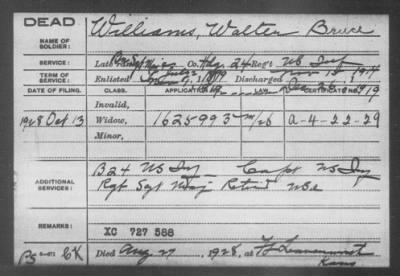 DEAD
NAME OF SOLDIER: Williams, Walter Bruce
SERVICE: Late Hdq 24 Regt. US Inf
TERM OF SERVICE: Enlisted July Discharged Nov 15, 1914
DATE OF FILING. CLASS. APPLICATION LAW. CERTIFICATE
Invalid,
1928 Oct 13 Widow, 1625993 A-4-22-29
Minor,
ADDITIONAL SERVICES: B 24 US Inf Capt US Inf
Rgt Sgt Maj Retired USA
REMARKS: XC 727 588
Died Aug 27, 1928, at Ft Leavenworth
Kans